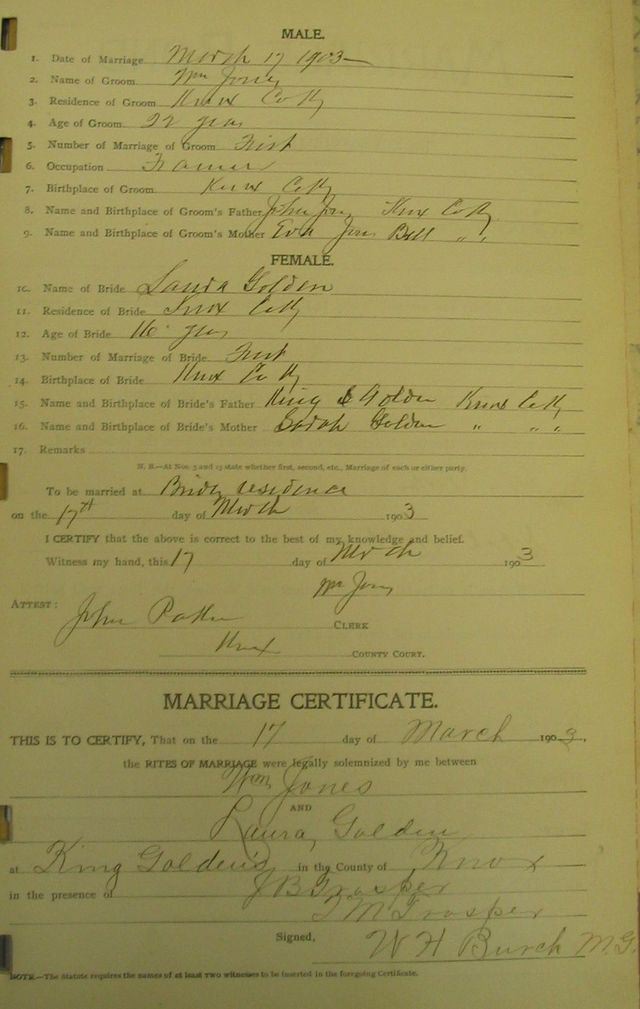 MALE.
1. Date of Marriage March 17 1903
2. Name of Groom Wm Jones
3. Residence of Groom Knox Co Ky
4. Age of Groom 22 years
5. Number of Marriage of Groom First
6. Occupation Farmer
7. Birthplace of Groom Knox Co Ky
8. Name and Birthplace of Groom's Father John Jones Knox Co Ky
9. Name and Birthplace of Groom's Mother Eva Jones Bell " "
FEMALE.
10. Name of Bride Laura Golden
11. Residence of Bride Knox Co Ky
12. Age of Bride 16 years
13. Number of Marriage of Bride First
14. Birthplace of Bride Knox Co Ky
15. Name and Birthplace of Bride's Father King Golden Knox Co Ky
16. Name and Birthplace of Bride's Mother Sarah Golden " " "
17. Remarks
N. B.—At Nos. 5 and 13 state whether first, second, etc., Marriage of each or either party.
To be married at Brides residence
on the 17th day of March 1903
I CERTIFY that the above is correct to the best of my knowledge and belief.
Witness my hand, this 17 day of March 1903
Wm Jones
ATTEST:
John Parker CLERK
Knox COUNTY COURT.
MARRIAGE CERTIFICATE.
THIS IS TO CERTIFY, That on the 17 day of March 1903,
the RITES OF MARRIAGE were legally solemnized by me between
Wm Jones
AND
Laura Golden
at King Golden's in the County of Knox
in the presence of J B Trosper
T M Trosper
Signed, W H Burch M.G.
NOTE.—The Statute requires the names of at least TWO witnesses to be inserted in the foregoing Certificate.